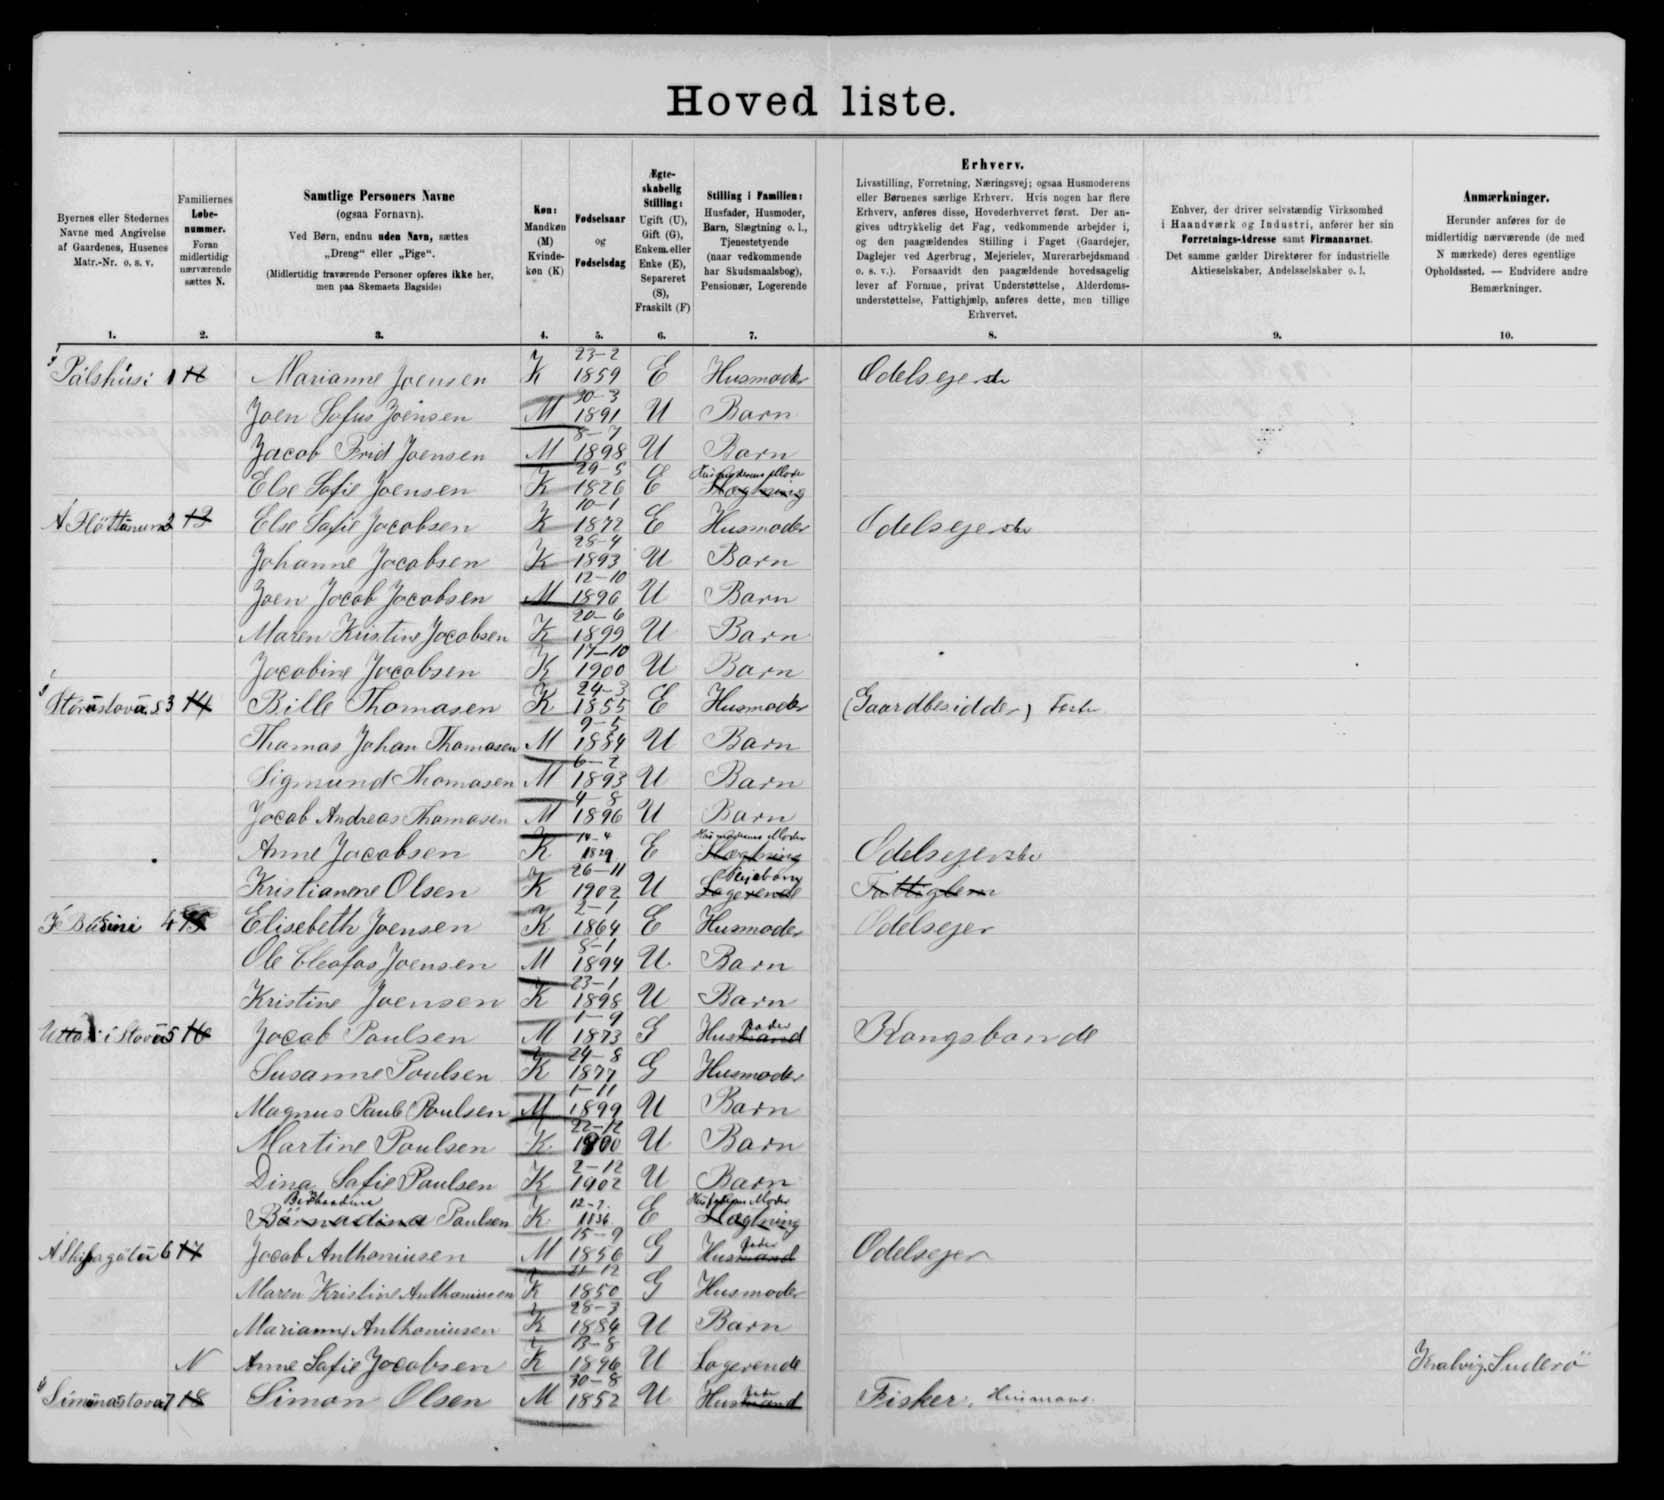 Hoved liste.
Byernes eller Stedernes
Navne med Angivelse
af Gaardenes, Husenes
Matr.-Nr. o. s. v.
1.
Familiernes
Løbe-
nummer.
Foran
midlertidig
nærværende
sættes N.
2.
Samtlige Personers Navne
(ogsaa Fornavn).
Ved Børn, endnu uden Navn, sættes
„Dreng" eller „Pige".
(Midlertidig fraværende Personer opføres ikke her,
men paa Skemaets Bagside)
3.
Køn:
Mandkøn
(M)
Kvinde-
køn (K)
4.
Fødselsaar
og
Fødselsdag
5.
Ægte-
skabelig
Stilling:
Ugift (U),
Gift (G),
Enkem. eller
Enke (E),
Separeret
(S),
Fraskilt (F)
6.
Stilling i Familien:
Husfader, Husmoder,
Barn, Slægtning o. l.,
Tjenestetyende
(naar vedkommende
har Skudsmaalsbog),
Pensionær, Logerende
7.
Erhverv.
Livsstilling, Forretning, Næringsvej; ogsaa Husmoderens
eller Børnenes særlige Erhverv. Hvis nogen har flere
Erhverv, anføres disse, Hovederhvervet først. Der an-
gives udtrykkelig det Fag, vedkommende arbejder i,
og den paagældendes Stilling i Faget (Gaardejer,
Daglejer ved Agerbrug, Mejerielev, Murerarbejdsmand
o. s. v.). Forsaavidt den paagældende hovedsagelig
lever af Formue, privat Understøttelse, Alderdoms-
understøttelse, Fattighjælp, anføres dette, men tillige
Erhvervet.
8.
Enhver, der driver selvstændig Virksomhed
i Haandværk og Industri, anfører her sin
Forretnings-Adresse samt Firmanavnet.
Det samme gælder Direktører for industrielle
Aktieselskaber, Andelsselskaber o. l.
9.
Anmærkninger.
Herunder anføres for de
midlertidig nærværende (de med
N mærkede) deres egentlige
Opholdssted. — Endvidere andre
Bemærkninger.
10.
Pálshúsi 1 Marianne Joensen K 23-2 1859 E Husmoder Odelsejerske
Joen Sofus Joensen M 30-3 1891 U Barn
Jacob Frid Joensen M 8-7 1898 U Barn
Else Sofie Joensen K 29-5 1826 E Husmoderens Moder Slægtning
2 13 Else Sofie Jacobsen K 10-1 1872 E Husmoder Odelsejerske
Johanne Jacobsen K 28-4 1893 U Barn
Joen Jacob Jacobsen M 12-10 1896 U Barn
Maren Kristine Jacobsen K 20-6 1899 U Barn
Jacobine Jacobsen K 17-10 1900 U Barn
3 14 Bille Thomasen K 24-3 1855 E Husmoder (Gaardbesidder) Fæster
Thomas Johan Thomasen M 9-5 1884 U Barn
Sigmund Thomasen M 6-2 1893 U Barn
Jacob Andreas Thomasen M 4-8 1896 U Barn
Anne Jacobsen K 14-4 1829 E Husmoderens Moder Slægtning Odelsejerske
Kristianene Olsen K 26-11 1902 U Plejebarn Logerende
4 15 Elisebeth Joensen K 2-1 1864 E Husmoder Odelsejer
Ole Cleofas Joensen M 8-1 1894 U Barn
Kristine Joensen K 23-1 1898 U Barn
5 16 Jacob Poulsen M 1-9 1873 G Husmand fader Kongsbonde
Susanne Poulsen K 24-8 1877 G Husmoder
Magnus Paule Poulsen M 1-11 1899 U Barn
Martine Poulsen K 22-12 1900 U Barn
Dina Sofie Paulsen K 2-12 1902 U Barn
Paulsen K 12-7 1836 E Husfaderens Moder Slægtning
6 17 Jacob Anthoniusen M 15-9 1856 G Husmand fader Odelsejer
Maren Kristine Anthoniusen K 21-12 1850 G Husmoder
Marianne Anthoniusen K 28-3 1884 U Barn
N Anne Sofie Jacobsen K 13-8 1896 U Logerende Kvalvig, Suderø
Símunastova 7 18 Simon Olsen M 30-8 1852 U Husmand fader Fisker, Husmand